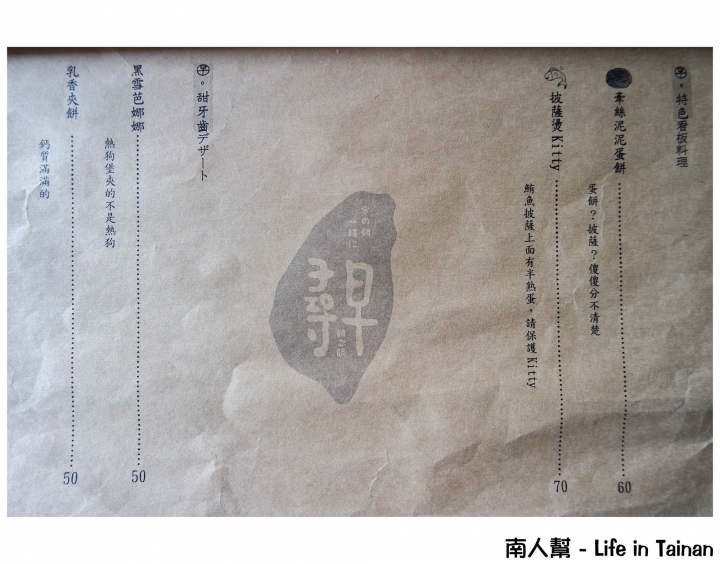 早。特色看板料理
牽絲泥泥蛋餅 60
蛋餅？披薩？傻傻分不清楚
披薩燙Kitty 70
鮪魚披薩上面有半熟蛋，請保護Kitty
早
尋
早。甜牙齒デザート
黑雪芭娜娜 50
熱狗堡夾的不是熱狗
乳香夾餅 50
鈣質滿滿的
南人幫 - Life in Tainan